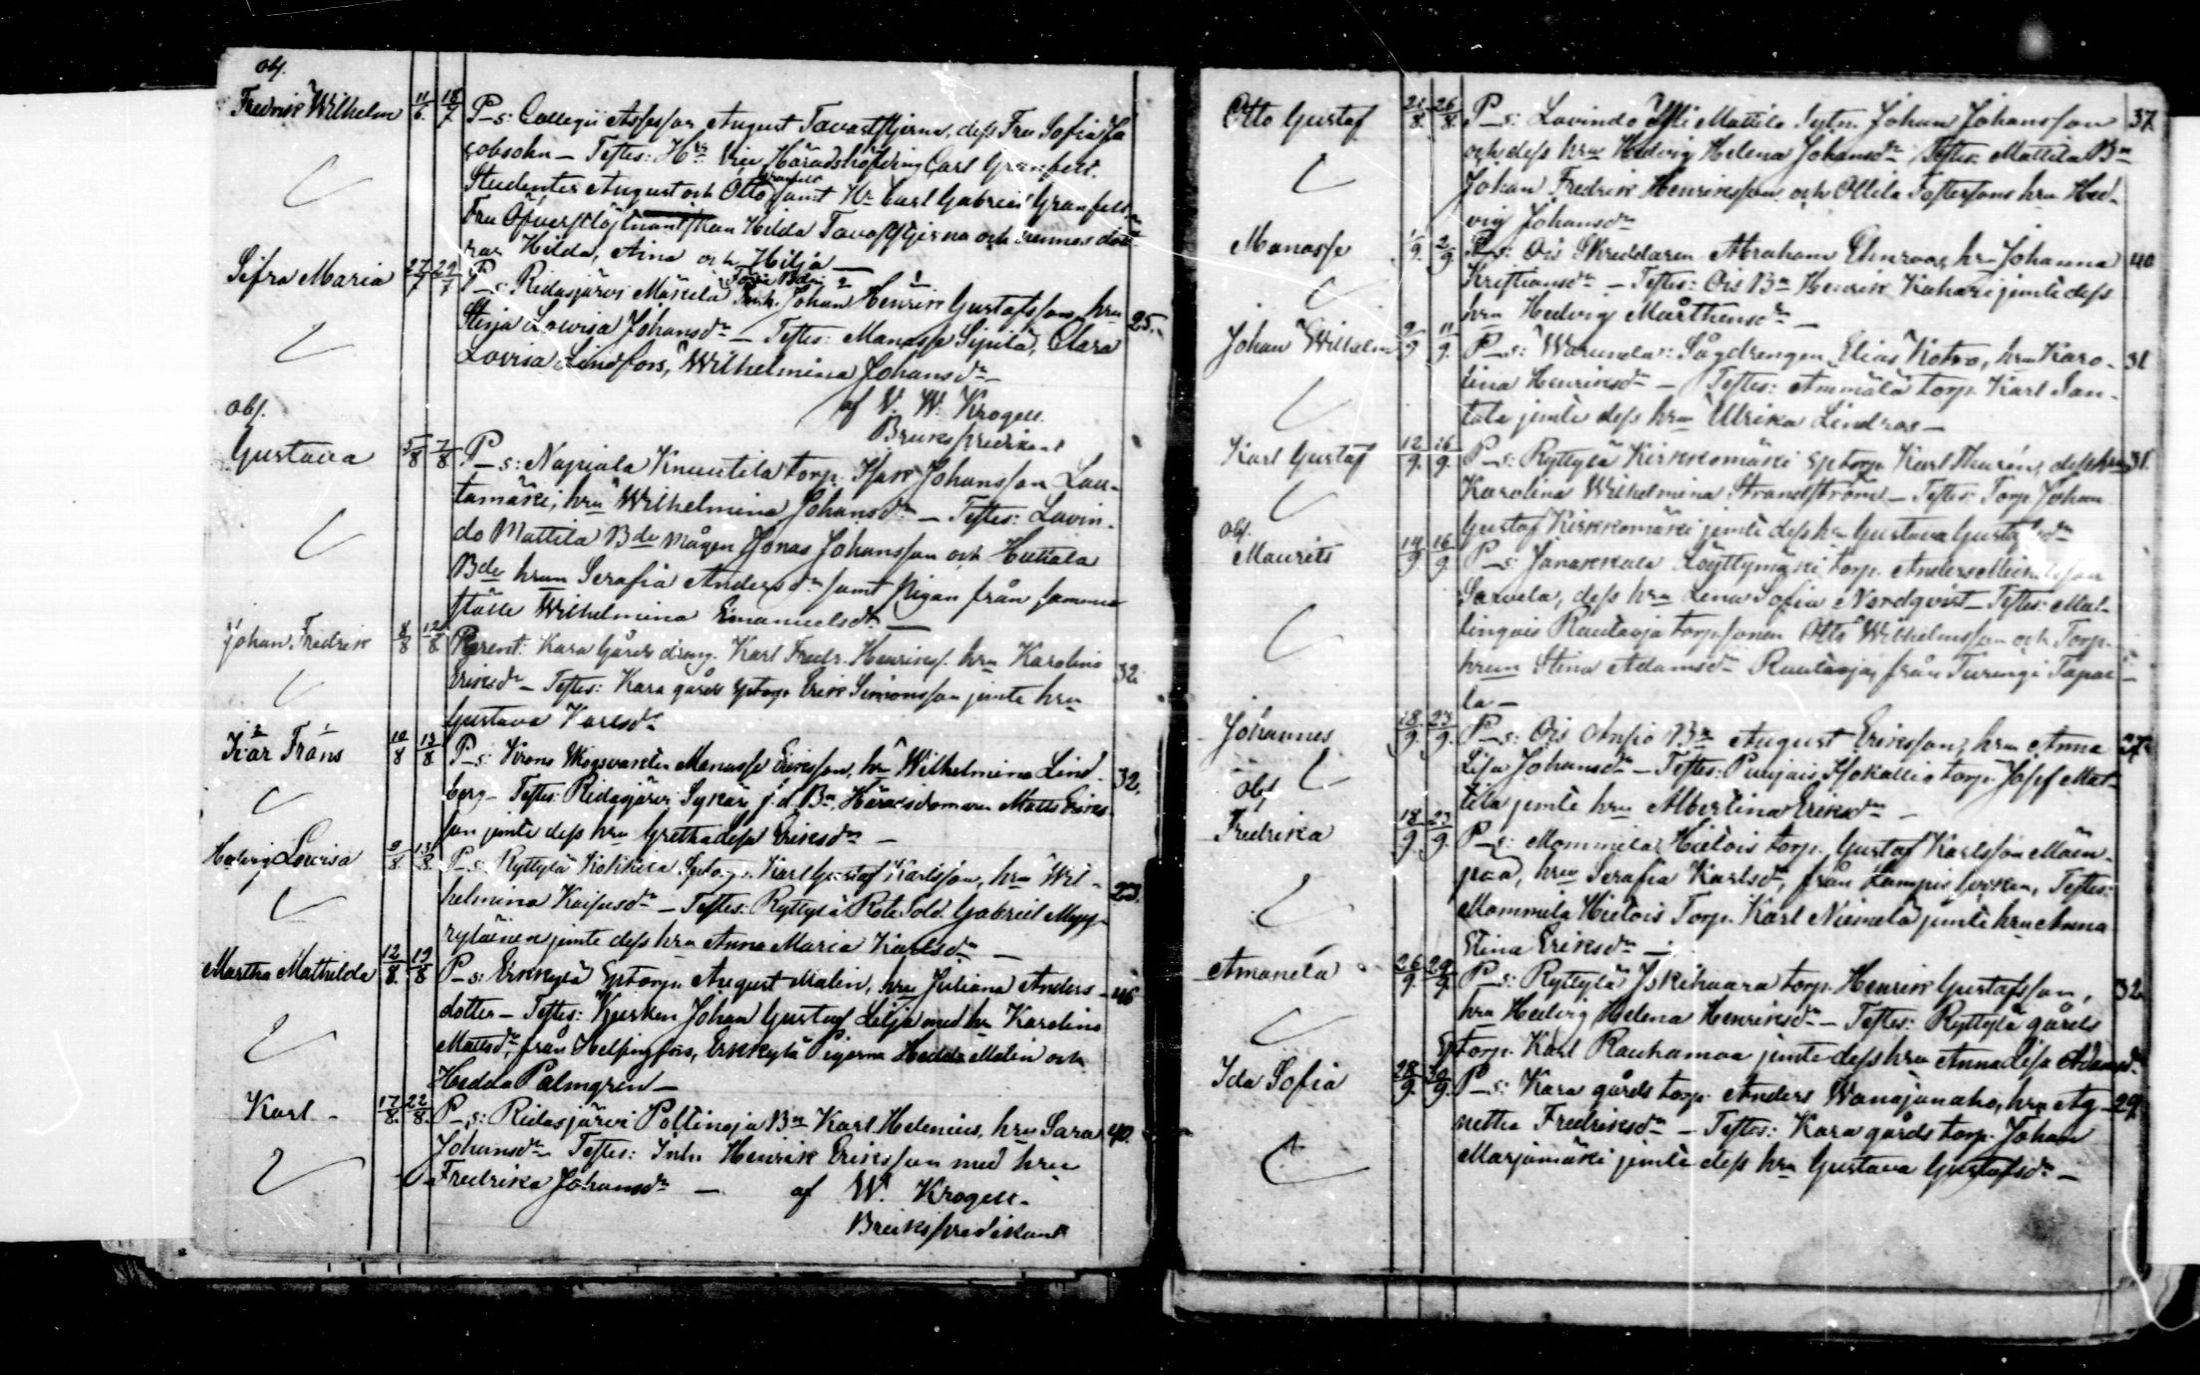 obs.
Fredrik Wilhelm 11/6. 18/7 P_s: Collegii Assessor August Tavaststjerna, dess Fru Sofia Ja
cobsohn – Testes: Hrr Vice Häradshöfding Carl Granfelt.
Granfelt
Studenter August och Otto samt Hr Carl Gabriel Granfelt
Fru Öfverstlöjtnantskan Hilda Tavaststjerna och hennes dött
rar Hilda, Aina och Hilja —
Sifra Maria 27/7 29/7 P_s: Ridasjärvi Mäkelä Inh. Johan Henrik Gustafsson, hru 25.
Stina Lovisa Johansdr – Testes: Manasse Sipilä, Clara
Lovisa Lindfors, Wilhelmina Johansdr –
af V. W. Krogell.
Brukspredikant
obs.
Gustava 5/8 7/8 P_s: Napiala Knuutila torp. Isak Johansson Lau-
tamäki, hru Wilhelmina Johansdr – Testes: Lavin-
do Mattila Bde mågen Jonas Johansson och Huttala
Bde hrun Serafia Andersdr samt Pigan från samma
ställe Wilhelmina Emanuelsdr —
Johan Fredrik 8/8 12/8 Parent: Kara Gårds dreng. Karl Fredr. Henrikss. hru Karolina 32.
Eriksdr – Testes: Kara gårds Sptorp. Erik Simonsson jemte hru
Gustava Karlsdr
Ivar Frans 10/8 13/8 P_s: Krono Skogsvakten Manasse Eriksson, hru Wilhelmina Lind- 32.
berg – Testes: Ridasjärvi Sykäri f.d. Bn Häradsdomaren Matts Eriks-
son jemte dess hru Gretha Lisa Eriksdr —
Hedvig Lovisa 9/8. 13/8. P_s: Ryttylä Kokkila Sptorp. Karl Gustaf Karlsson, hru Wil- 23.
helmina Kaisasdr – Testes: Ryttylä Rote Sold. Gabriel Myy-
ryläinen jemte dess hru Anna Maria Karlsdr —
Martha Mathilda 12/8. 19/8 P_s: Erkkylä Sptorp. August Malin, hru Juliana Anders- 46
dotter – Testes: Kusken Johan Gustaf Lilja med hru Karolina
Mattsdr, från Helsingfors, Erkkylä Pigorna Hedda Malin och
Hedda Palmgren —
Karl – 17/8. 22/8. P_s: Ridasjärvi Poltinoja Bn Karl Helenius, hru Sara 40.
Johansdr Testes: Inh. Henrik Eriksson med hru
Fredrika Johansdr — af W. Krogell.
Brukspredikant
Otto Gustaf 21/8. 26/8. P_s: Lavindo Ylli Mattila Sytn. Johan Johansson 37.
och dess hru Hedvig Helena Johansdr Testes: Mattila Bn
Johan Fredrik Henriksson och Ollila Testersons hru Hed-
vig Johansdr
Manasse 1/9. 2/9 P_s: Ois Skreddaren Abraham Elmroos, hr Johanna 40
Kristiansdr – Testes: Ois Bn Henrik Kahari jemte dess
hru Hedvig Mårthensdr —
Johan Wilhelm 9/9 11/9. P_s: Warunda: Sågdrengen Elias Kotro, hru Karo- 31
lina Henriksdr – Testes: Ammälä torp. Karl San-
tala jemte dess hru Ulrika Lindros –
Karl Gustaf 12/9. 16/9. P_s: Ryttylä Kirkkomäki Sptorp. Karl Thurén, dess hru 31.
Karolina Wilhelmina Strandström – Testes: Torp. Johan
Gustaf Kirkkomäki jemte dess hr Gustava Gustafsdr
obs.
Maurits 14/9 16/9. P_s: Janakkala Löyttymäki torp. Anders Mickelsson
Sarvela, dess hru Lena Sofia Nordqvist – Testes: Mal-
lingais Rautaoja torp. sonen Otto Wilhelmsson och Torp-
hrun Stina Adamsdr Rautaoja, från Turengi Tapai
la –
Johannes 18/9. 23/9. P_s: Ois Ansio Bn August Eriksson, hru Anna 27
Lisa Johansdr – Testes: Puujais Isokallio torp. Josef Mat-
tila jemte hru Albertina Eriksdr –
obs.
Fredrika 18/9. 23/9. P_s: Mommila Hietois torp. Gustaf Karlsson Mäen-
pää, hru Serafia Karlsdr, från Lampis socken, Testes:
Mommila Hietois Torp. Karl Niemelä jemte hru Anna
Stina Eriksdr —
Amanda 26/9. 29/9. P_s: Ryttylä Iskihaara torp. Henrik Gustafsson, 32.
hru Hedvig Helena Henriksdr – Testes: Ryttylä gårds
Sptorp. Karl Rauhamaa jemte dess hru Anna Lisa Adamsdr.
Ida Sofia 28/9. 30/9. P_s: Kara gårds torp. Anders Wanajanaho, hru Ag- 29.
netha Fredriksdr – Testes: Kara gårds torp. Johan
Marjamäki jemte dess hru Gustava Gustafsdr –